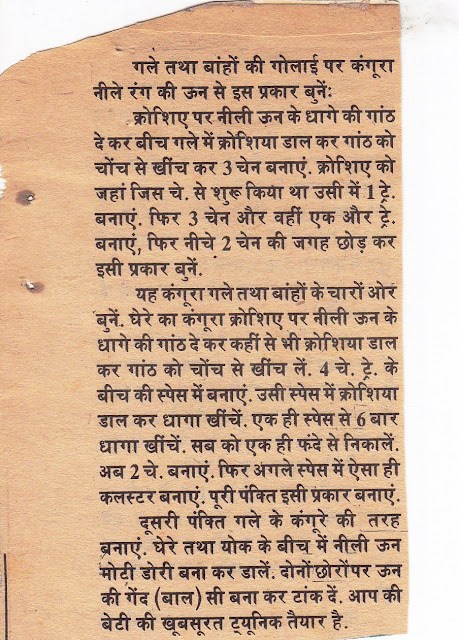 गले तथा बांहों की गोलाई पर कंगूरा
नीले रंग की ऊन से इस प्रकार बुनें:
क्रोशिए पर नीली ऊन के धागे की गांठ
दे कर बीच गले में क्रोशिया डाल कर गांठ को
चोंच से खींच कर 3 चेन बनाएं. क्रोशिए को
जहां जिस चे. से शुरू किया था उसी में 1 ट्रे.
बनाएं. फिर 3 चेन और वहीं एक और ट्रे.
बनाएं, फिर नीचे 2 चेन की जगह छोड़ कर
इसी प्रकार बुनें.
यह कंगूरा गले तथा बांहों के चारों ओर
बुनें. घेरे का कंगूरा क्रोशिए पर नीली ऊन के
धागे की गांठ दे कर कहीं से भी क्रोशिया डाल
कर गांठ को चोंच से खींच लें. 4 चे. ट्रे. के
बीच की स्पेस में बनाएं. उसी स्पेस में क्रोशिया
डाल कर धागा खींचें. एक ही स्पेस से 6 बार
धागा खींचें. सब को एक ही फंदे से निकालें.
अब 2 चे. बनाएं. फिर अगले स्पेस में ऐसा ही
कलस्टर बनाएं. पूरी पंक्ति इसी प्रकार बनाएं.
दूसरी पंक्ति गले के कंगूरे की तरह
बनाएं. घेरे तथा योक के बीच में नीली ऊन
मोटी डोरी बना कर डालें. दोनों छोरोंपर ऊन
की गेंद (बाल) सी बना कर टांक दें. आप की
बेटी की खूबसूरत ट्यूनिक तैयार है.